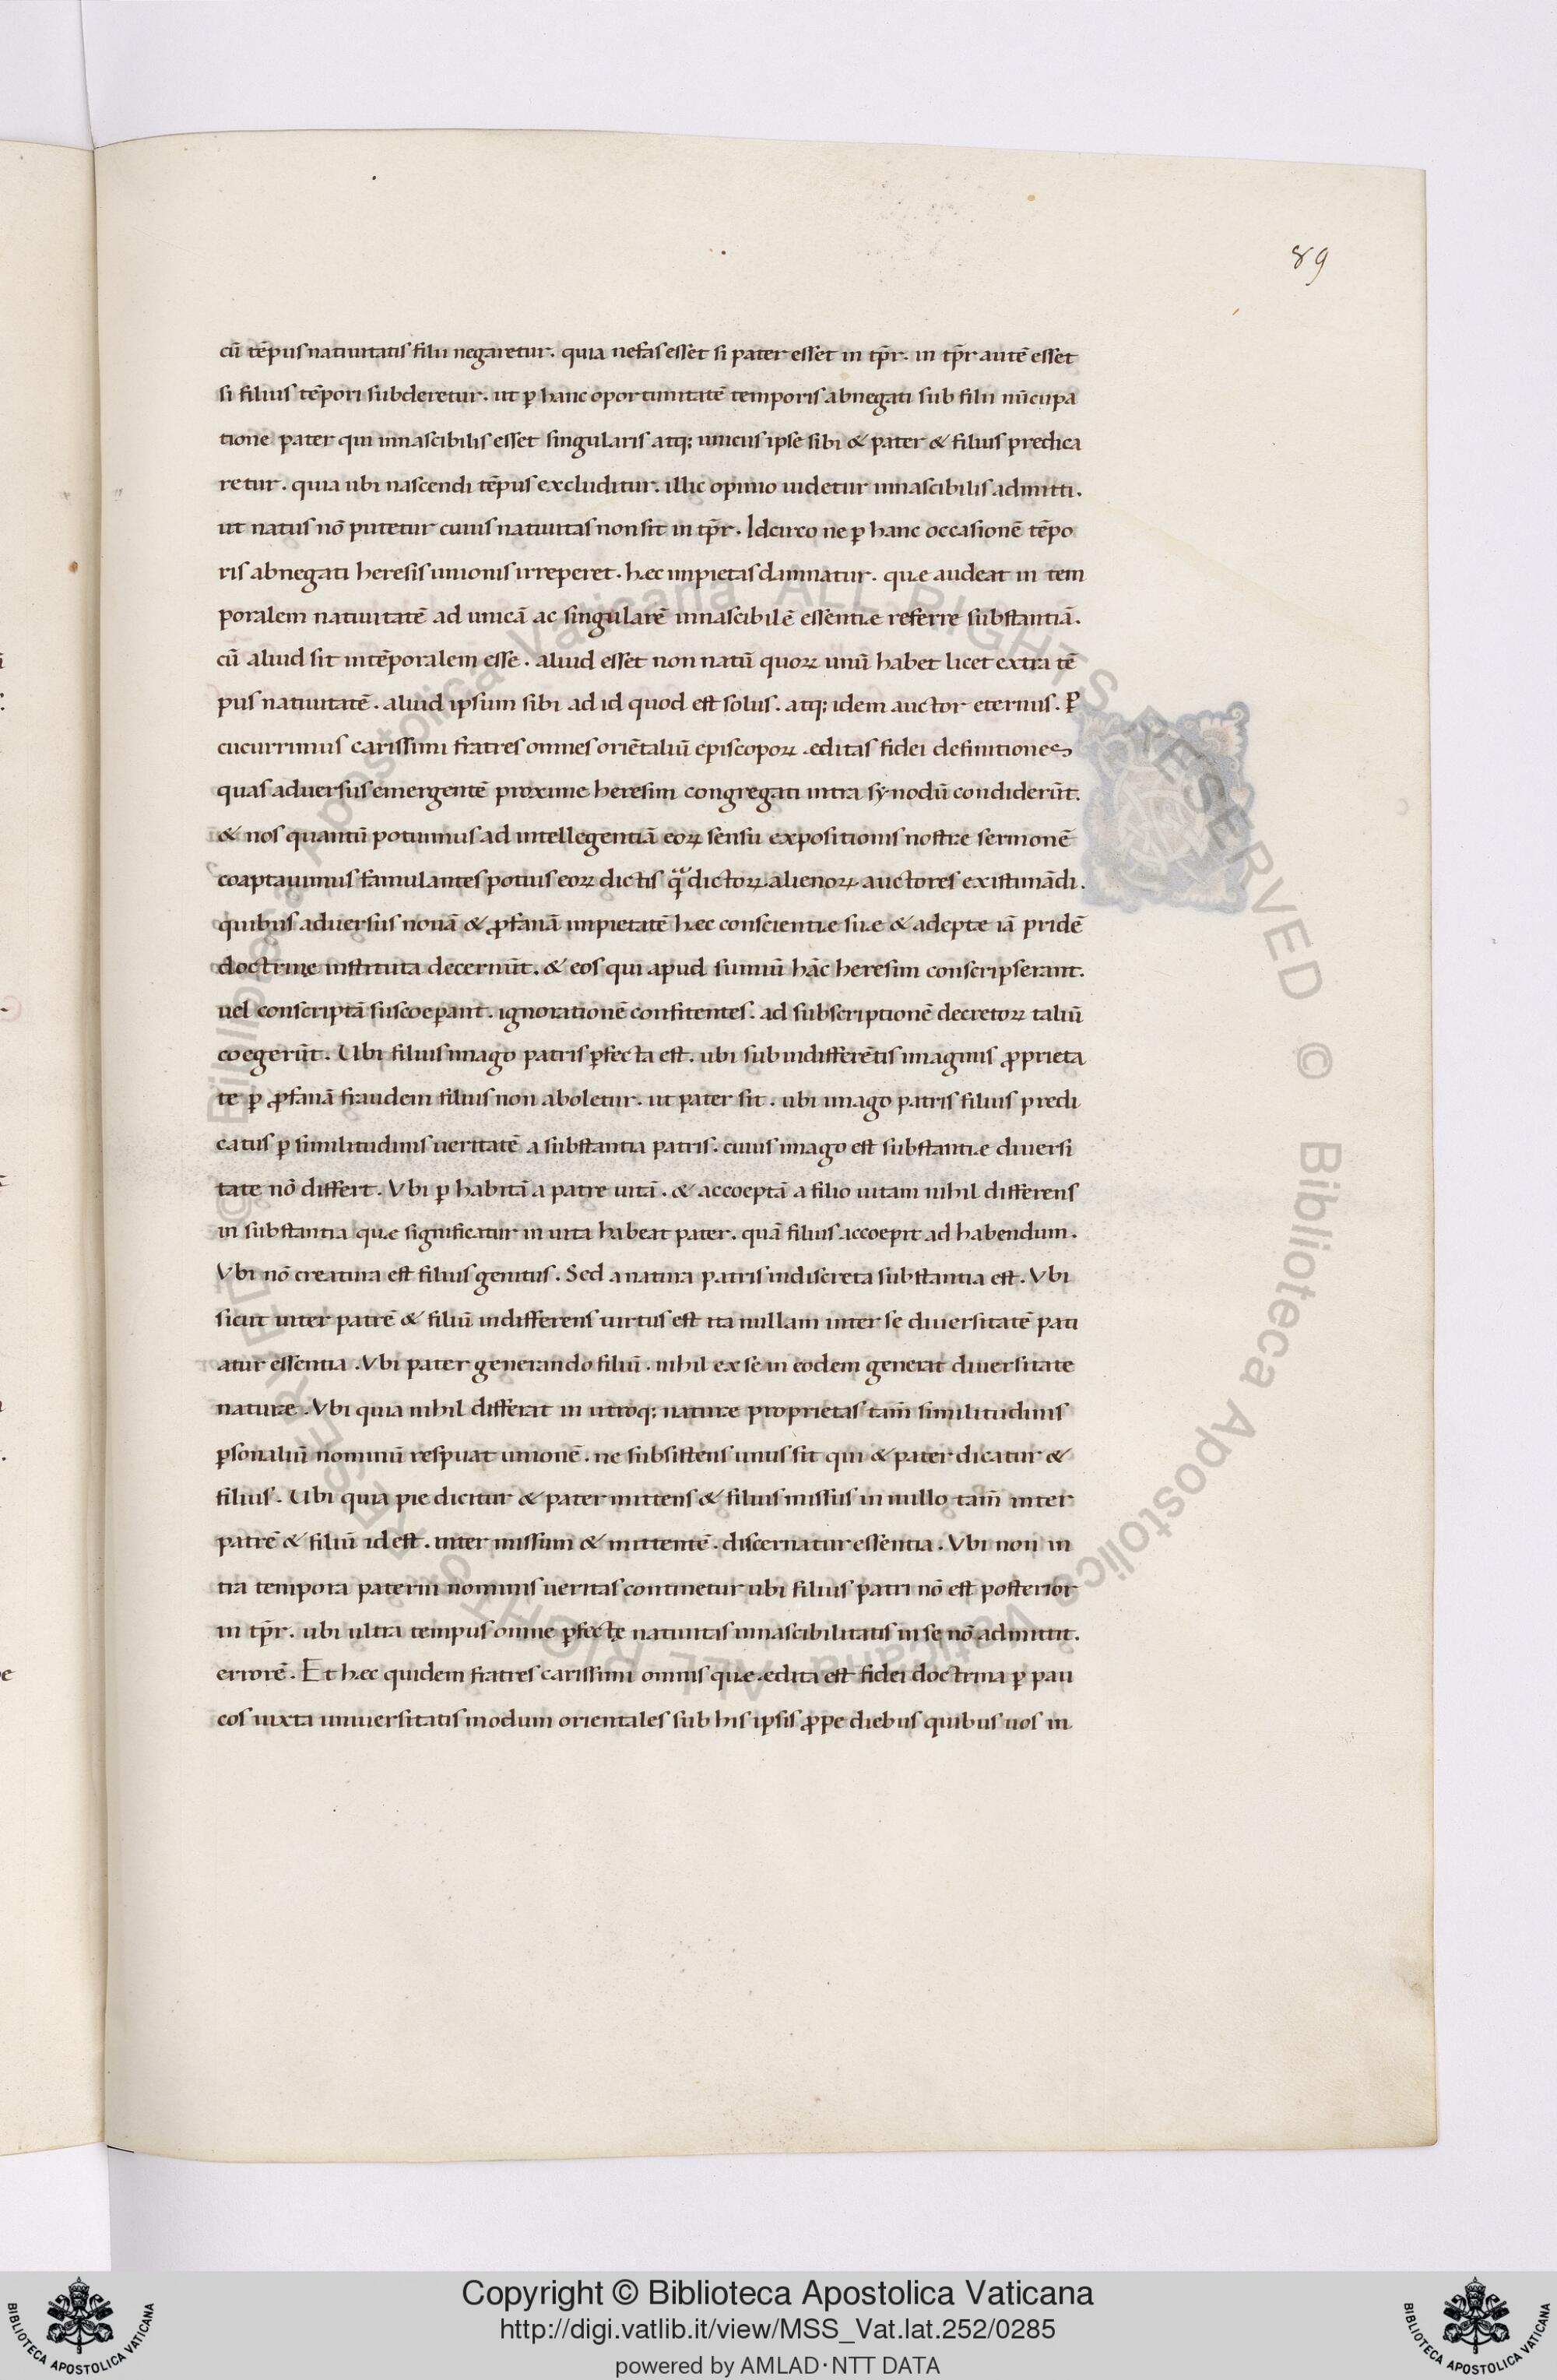 89
cū tēpus natiuitatis filii negaretur. quia nefas esset si pater esset in tp̄r. in tp̄r autē esset
si filius tēpori subderetur. ut ꝑ hanc oportunitatē temporis abnegati sub filii nūcupa
tione pater qui innascibilis esset singularis atq; unicus ipse sibi & pater & filius predica
retur. quia ubi nascendi tēpus excluditur. illic opinio uidetur innascibilis admitti.
ut natus nō putetur cuius natiuitas non sit in tp̄r. Idcirco ne ꝑ hanc occasionē tēpo
ris abnegati heresis unionis irreperet. hęc impietas damnatur. quę audeat in tem
poralem natiuitatē ad unicā ac singularē innascibilē essentię referre substantiā.
cū aliud sit intēporalem esse. aliud esset non natū quoꝝ unū habet licet extra tē
pus natiuitatē. aliud ipsum sibi ad id quod est solus. atq; idem auctor eternus. P̄
cucurrimus carissimi fratres omnes oriētaliū episcopoꝝ. editas fidei definitiones
quas aduersus emergentē proxime heresim congregati intra synodū condiderūt.
& nos quantū potuimus ad intellegentiā eoꝝ sensu expositionis nostrę sermonē
coaptauimus famulantes potius eoꝝ dictis q̄ dictoꝝ. alienoꝝ. auctores existimādi.
quibus aduersus nouā & ꝓfanā impietatē hęc conscientię suę & adeptę iā pridē
doctrinę instituta decernūt. & eos qui apud sumiū hāc heresim conscripserant.
uel conscriptā suscoeꝑant. ignorationē confitentes. ad subscriptionē decretoꝝ taliū
coegerūt. Ubi filius imago patris ꝑfecta est. ubi sub indifferētis imaginis ꝓprieta
te ꝑ ꝓfanā fraudem filius non aboletur. ut pater sit. ubi imago patris filius predi
catus ꝑ similitudinis ueritatē a substantia patris. cuius imago est substantię diuersi
tate nō differt. Vbi ꝑ habitā a patre uitā. & accoeptā a filio uitam nihil differens
in substantia quę significatur in uita habeat pater. quā filius accoepit ad habendum.
Vbi nō creatura est filius genitus. Sed a natura patris indiscreta substantia est. Vbi
sicut inter patrē & filiū indifferens uirtus est ita nullam inter se diuersitatē pati
atur essentia. Vbi pater generando filiū. nihil ex se in eodem generat diuersitate
naturæ. Vbi quia nihil differat in utroq; naturæ proprietas tam̄ similitudinis
ꝑsonaliū nominū respuat unionē. ne subsistens unus sit qui & pater dicatur &
filius. Ubi quia pie dicitur & pater mittens & filius missus in nullo tam̄ inter
patrē & filiū id est. inter missum & mittentē. discernatur essentia. Vbi non in
tra tempora paterni nominis ueritas continetur ubi filius patri nō est posterior
in tp̄r. ubi ultra tempus omne ꝑfectę natiuitas innascibilitatis in se nō admittit.
errorē. Et hęc quidem fratres carissimi omnis quę. edita est fidei doctrina ꝑ pau
cos iuxta uniuersitatis modum orientales sub his ipsis ꝓpe diebus quibus uos in
© Biblioteca Apostolica Vaticana ALL RIGHTS RESERVED
© Biblioteca Apostolica Vaticana ALL RIGHTS RESERVED
Copyright © Biblioteca Apostolica Vaticana
http://digi.vatlib.it/view/MSS_Vat.lat.252/0285
powered by AMLAD·NTT DATA
BIBLIOTECA APOSTOLICA VATICANA
BIBLIOTECA APOSTOLICA VATICANA